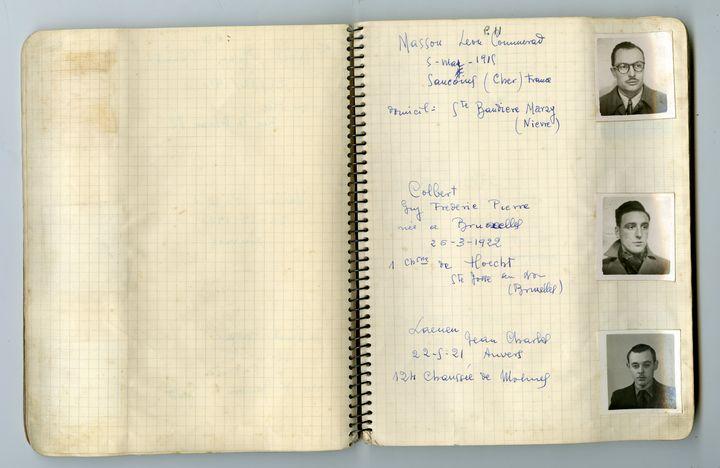 P. 11
Masson Leon Commerad
5-mai-1915
Sancoins (Cher) France
domicil: Ste Baudiere Marzy
(Nievre)
Colbert
Guy Frederic Pierre
née a Bruxelles
26-3-1922
1 Chsée de Haecht
Ste Josse ten
(Bruxelles)
Laenen
Jean Charles
22-5-21 Anvers
124 Chaussée de